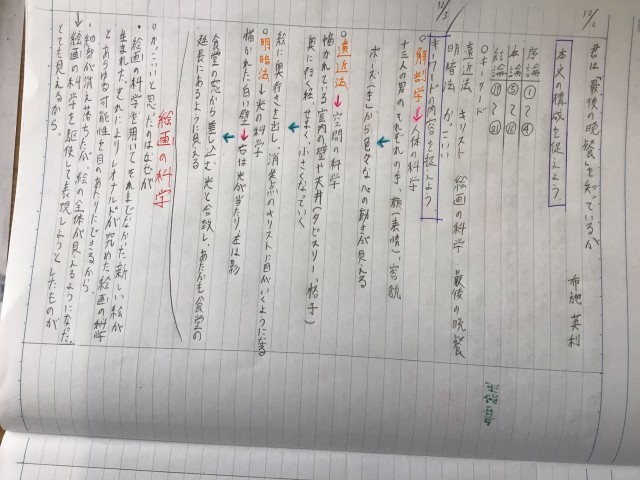 12/2
君は「最後の晩餐」を知っているか
布施 英利
本文の構成を捉えよう
序論 ①て④
本論 ⑤て⑱
結論 ⑲て㉑
○キーワード
遠近法 キリスト 絵画の科学 最後の晩餐
明暗法 かっこいい
12/3
キーワードの内容を捉えよう
○解剖学→人体の科学
十三人の男のそれぞれの手、顔(表情)、容貌
ポーズ(手)から色々な心の動きが見える
○遠近法→空間の科学
描かれている室内の壁や天井(タピスリー・格子)
奥に行く程、せまく、小さくなっていく
絵に奥行きを出し、消失点のキリストに目がいくようになる
○明暗法→光の科学
描かれた白い壁→右は光が当たり左は影
食堂の窓から差し込む光と合致し、あたかも食堂の
延長にあるように見える
絵画の科学
○かっこいいと思たのはなぜか
・絵画の科学を用いてそれまでなかた新しい絵が
生まれた。それによりレオナルドが究めた絵画の科学
とあらゆる可能性を目のあたりにできるから
・細部が消え落ちたが、絵の全体が見えるようになった。
→絵画の科学を駆使して表現しようとしたものが
とても見えるから。